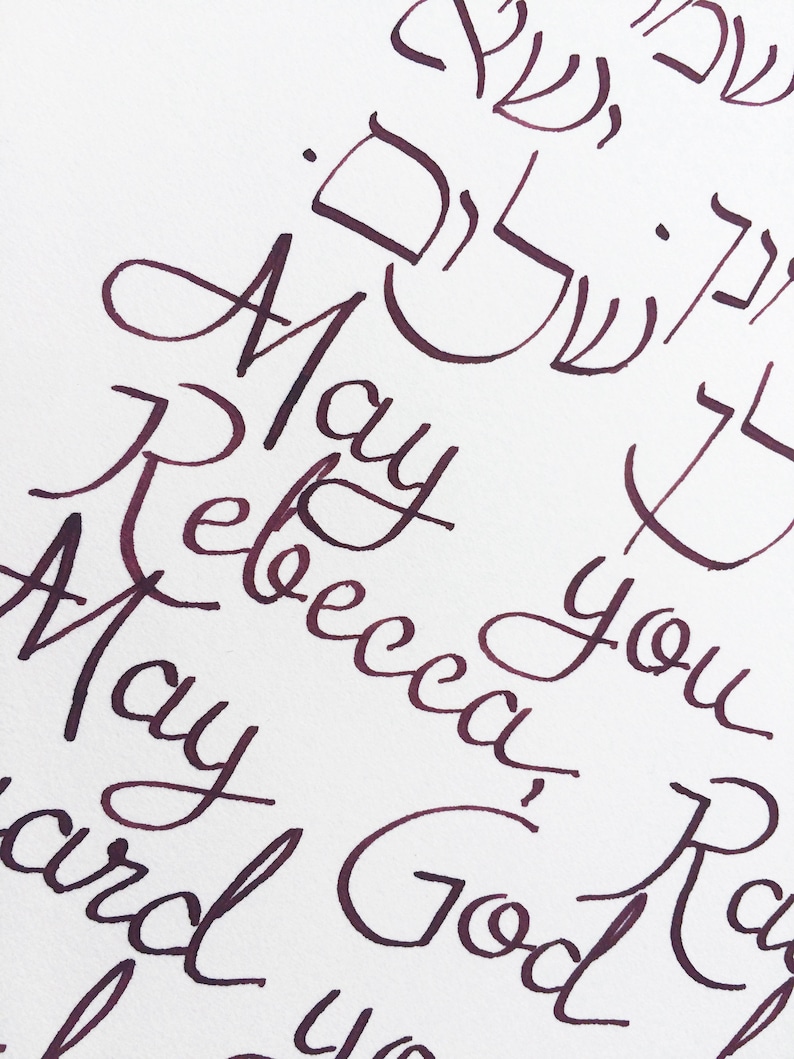 נך. ישא
לך שלום.
May you
Rebecca, Ra
May God
ard yo